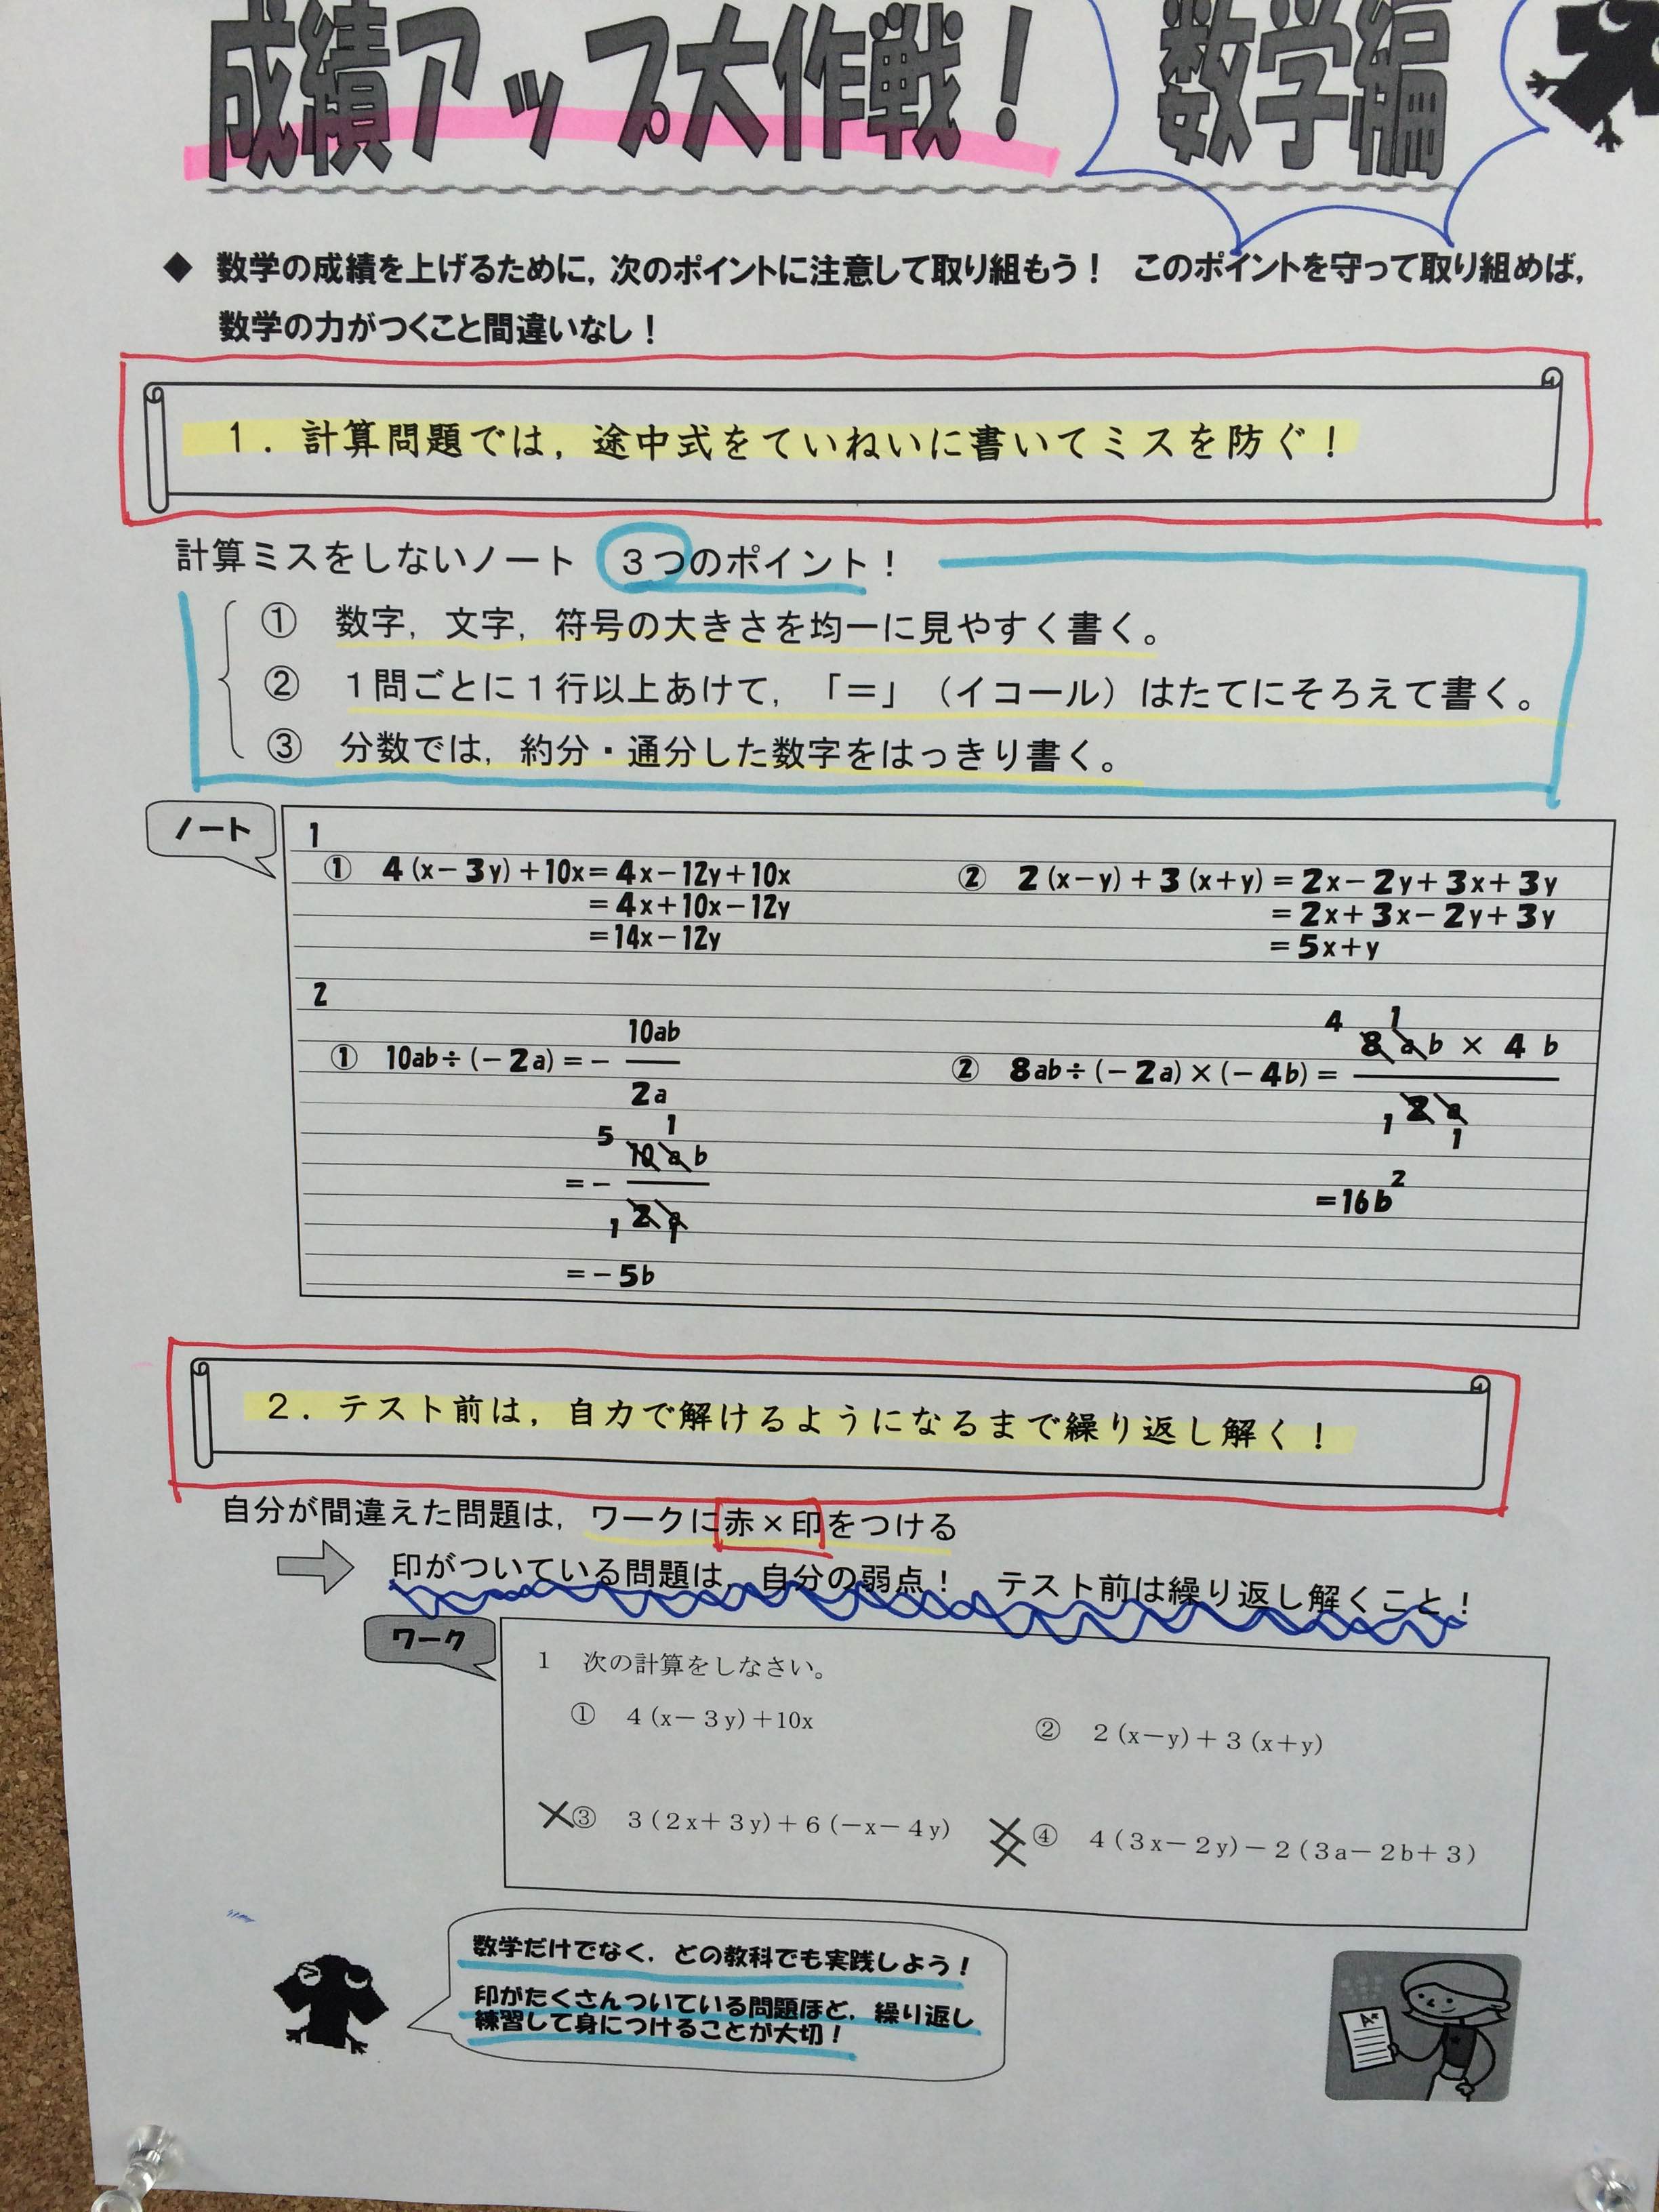 成績アップ大作戦！ 数学編
◆ 数学の成績を上げるために，次のポイントに注意して取り組もう！ このポイントを守って取り組めば，
数学の力がつくこと間違いなし！
１．計算問題では，途中式をていねいに書いてミスを防ぐ！
計算ミスをしないノート ３つのポイント！
① 数字，文字，符号の大きさを均一に見やすく書く。
② １問ごとに１行以上あけて，「＝」（イコール）はたてにそろえて書く。
③ 分数では，約分・通分した数字をはっきり書く。
ノート
1
① 4(x－3y)＋10x＝4x－12y＋10x
＝4x＋10x－12y
＝14x－12y
② 2(x－y)＋3(x＋y)＝2x－2y＋3x＋3y
＝2x＋3x－2y＋3y
＝5x＋y
2
10ab
① 10ab÷(－2a)＝－
2a
5 1
10ab
＝－
1 2a 1
＝－5b
4 1
8ab × 4b
② 8ab÷(－2a)×(－4b)＝
1 2a
1
＝16b²
２．テスト前は，自力で解けるようになるまで繰り返し解く！
自分が間違えた問題は，ワークに赤×印をつける
印がついている問題は，自分の弱点！ テスト前は繰り返し解くこと！
ワーク
1 次の計算をしなさい。
① 4(x－3y)＋10x
② 2(x－y)＋3(x＋y)
×③ 3(2x＋3y)＋6(－x－4y)
××④ 4(3x－2y)－2(3a－2b＋3)
数学だけでなく，どの教科でも実践しよう！
印がたくさんついている問題ほど，繰り返し
練習して身につけることが大切！
A+